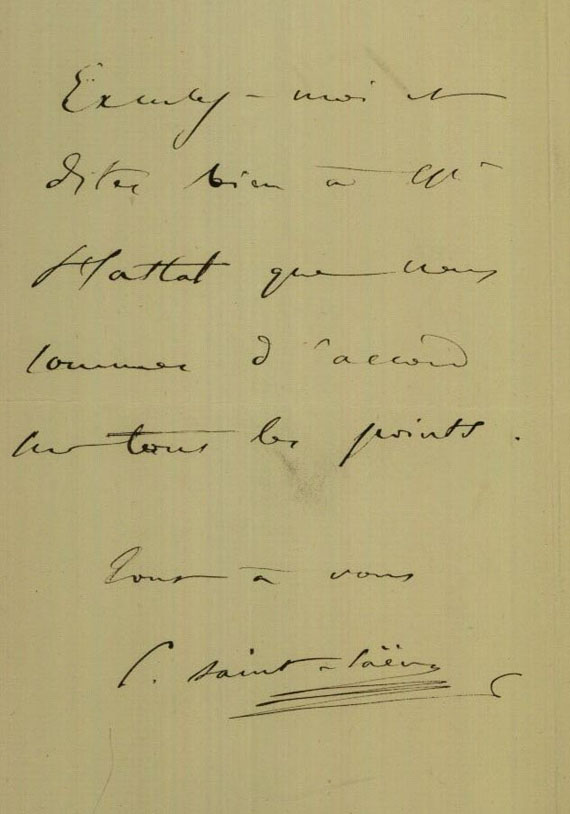 Excusez-moi et
dites bien à Mr
Hattat que nous
sommes d'accord
sur tous les points.
Tout à vous
C. Saint-Saëns